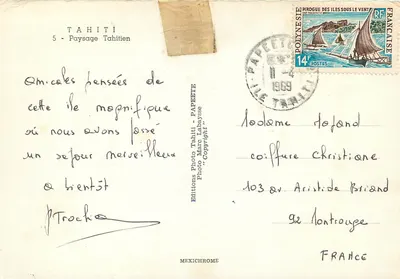 TAHITI
5 - Paysage Tahitien
Amicales pensées de
cette île magnifique
où nous avons passé
un séjour merveilleux
a bientôt
Editions Photo Tahiti - PAPEETE
Photo Marc Labaysse
"Copyright"
MEXICHROME
PIROGUE DES ILES SOUS LE VENT
POLYNESIE
FRANÇAISE
14F
POSTES
PAPEETE
11-4
1969
ILE TAHITI
Madame
coiffure Christiane
103 av Aristide Briand
92 Montrouge
FRANCE